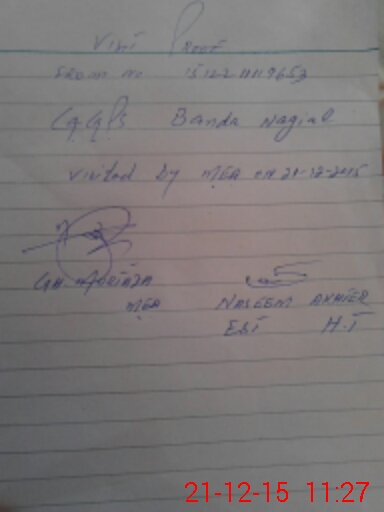 Visit Proof
From No. 
G.G.P.S Banda Nagial
Visited by MEA on 21-12-2015
GH. MURTAZA
MEA
NASEEM AKHTER
EST H.T
21-12-15 11:27